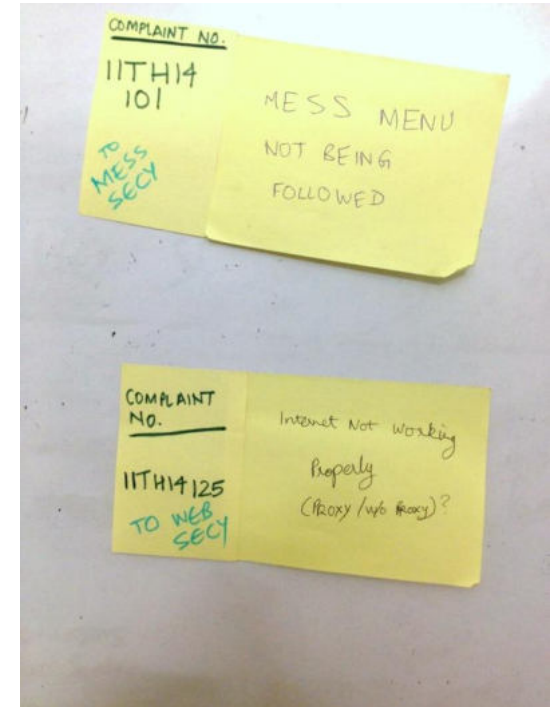 COMPLAINT NO.
11TH14
101
TO
MESS
SECY
MESS MENU
NOT BEING
FOLLOWED
COMPLAINT
NO.
11TH14125
TO WEB
SECY
Internet Not Working
Properly
(PROXY / w/o PROXY)?